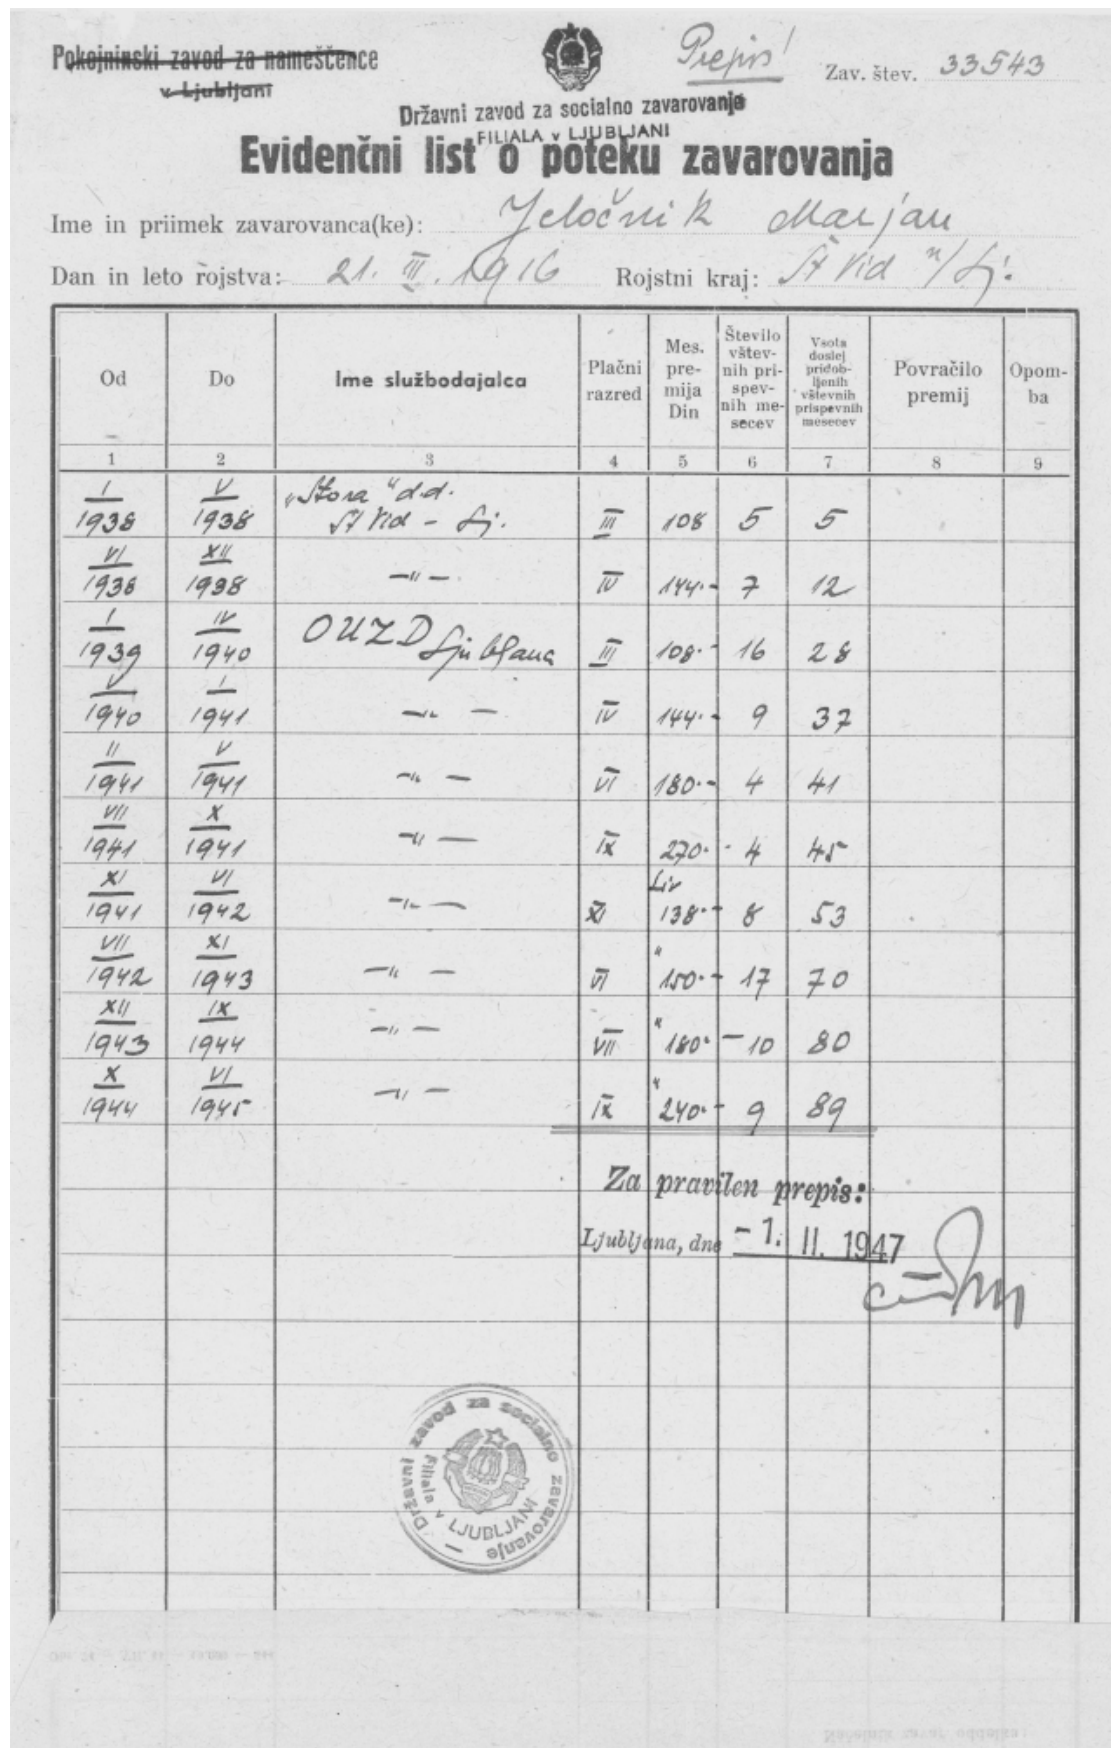 Pokojninski zavod za nameščence
v Ljubljani
Prepis!
Zav. štev. 33543
Državni zavod za socialno zavarovanje
FILIALA v LJUBLJANI
Evidenčni list o poteku zavarovanja
Ime in priimek zavarovanca(ke): Jeločnik Marjan
Dan in leto rojstva: 21. III. 1916 Rojstni kraj: Št Vid n/Lj.
Od Do Ime službodajalca Plačni razred Mes. premija Din Število vštevnih prispevnih mesecev Vsota doslej pridobljenih vštevnih prispevnih mesecev Povračilo premij Opomba
1 2 3 4 5 6 7 8 9
I V „Stora“ d.d.
1938 1938 Št Vid - Lj. III 108 5 5
VI XII
1938 1938 —„— IV 144.- 7 12
I IV OUZD Ljubljana
1939 1940 III 108.- 16 28
V I
1940 1941 —„— IV 144.- 9 37
II V
1941 1941 —„— VI 180.- 4 41
VII X
1941 1941 —„— IX 270.- 4 45
XI VI Lir
1941 1942 —„— XI 138.- 8 53
VII XI "
1942 1943 —„— VI 150.- 17 70
XII IX "
1943 1944 —„— VII 180.- 10 80
X VI "
1944 1945 —„— IX 240.- 9 89
Za pravilen prepis:
Ljubljana, dne -1. II. 1947
Državni zavod za socialno zavarovanje
Filiala v LJUBLJANI